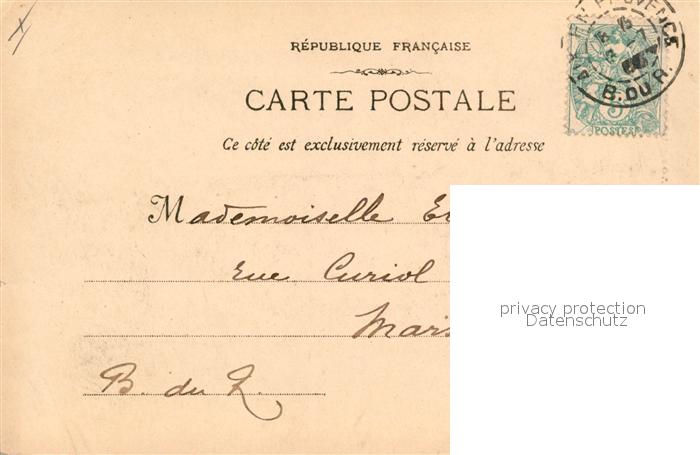 RÉPUBLIQUE FRANÇAISE
CARTE POSTALE
Ce côté est exclusivement réservé à l'adresse
AIX EN PROVENCE
B. DU R.
5
POSTES
Mademoiselle
Rue Curiol
Mars
B. du R.
privacy protection
Datenschutz